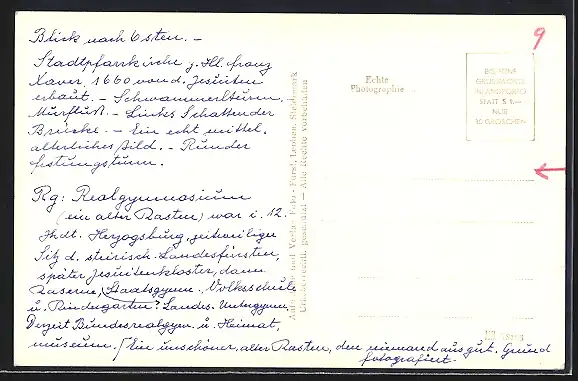 Blick nach Osten. –
Stadtpfarrkirche z. Hl. Franz
Xaver, 1660 von d. Jesuiten
erbaut. – Schwammerlturm,
Murfluß. – Links Schattender
Brücke. – Ein echt mittel-
alterliches Bild. – Runder
Festungsturm.
Rg: Realgymnasium
(ein alter Kasten) war i. 12.
Jhdt. Herzogsburg, zeitweiliger
Sitz d. steirisch. Landesfürsten,
später Jesuitenkloster, dann
Kaserne, Staatsgymn. Volksschule
u. Kindergarten? Landes. Untergymn.
Derzeit Bundesrealgym. u. Heimat,
museum. / Ein unschöner, alter Kasten, den niemand aus gut. Grund
fotografiert.
und Verlag: Foto-Fürst, Leoben, Steiermark
Urheberrechtl. geschützt – Alle Rechte vorbehalten
Echte
Photographie
9
BIS FÜNF
GRUSSWORTE
INLANDPORTO
STATT S 1.—
NUR
30 GROSCHEN